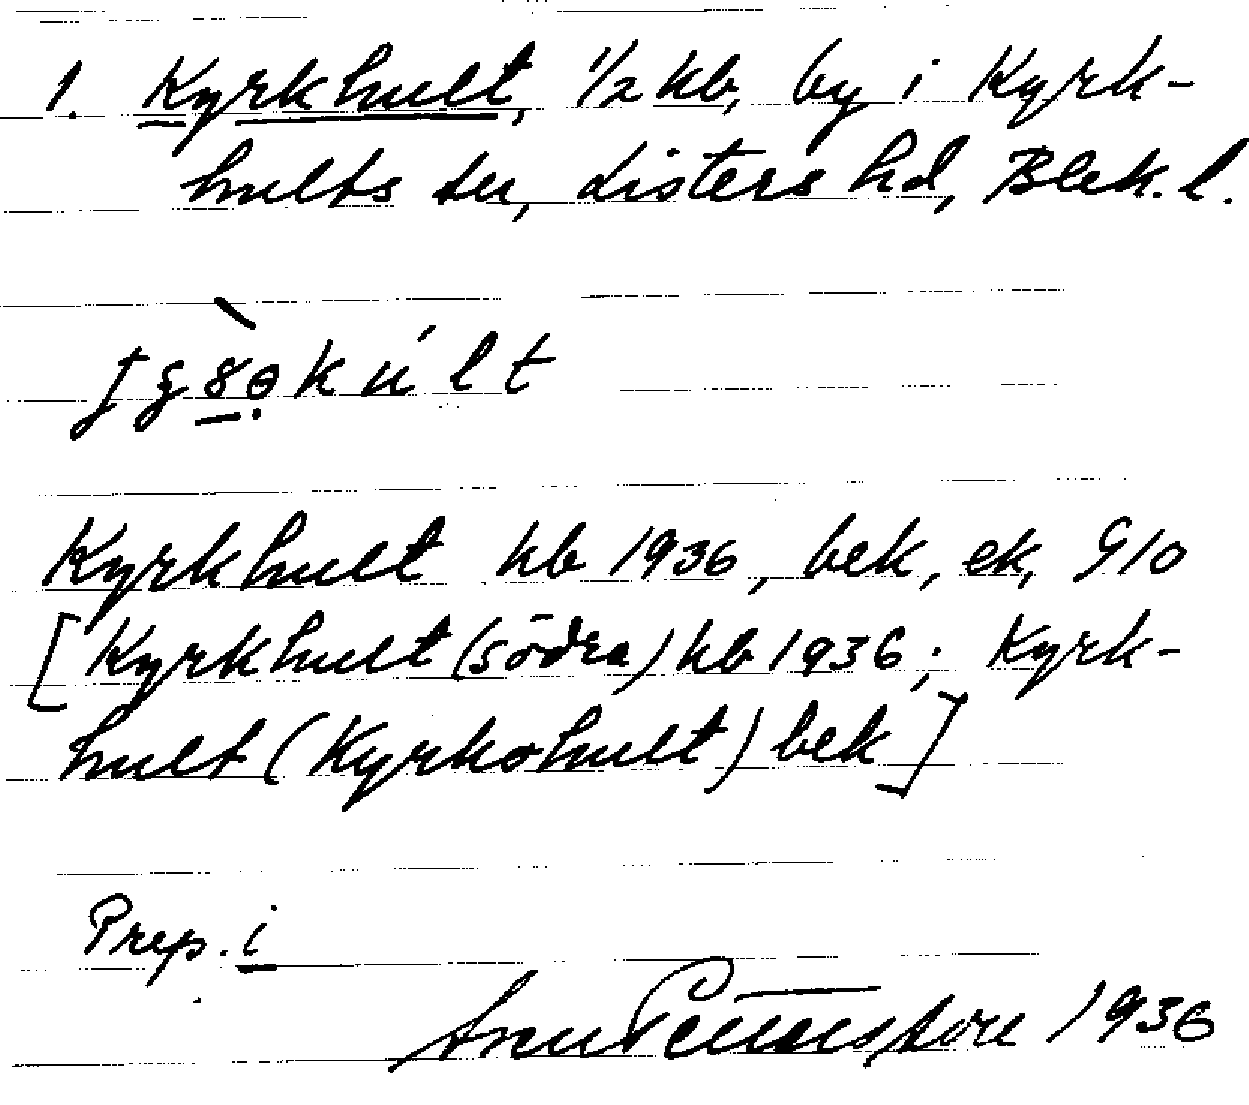 1. Kyrkhult, 1/2 kb, by i Kyrk-
hults sn, Listers hd, Blek. l.
Kyrkhult kb 1936, bek, ek, G10
[Kyrkhult (södra) kb 1936; Kyrk-
hult (Kyrkohult) bek]
Prep. i
1936